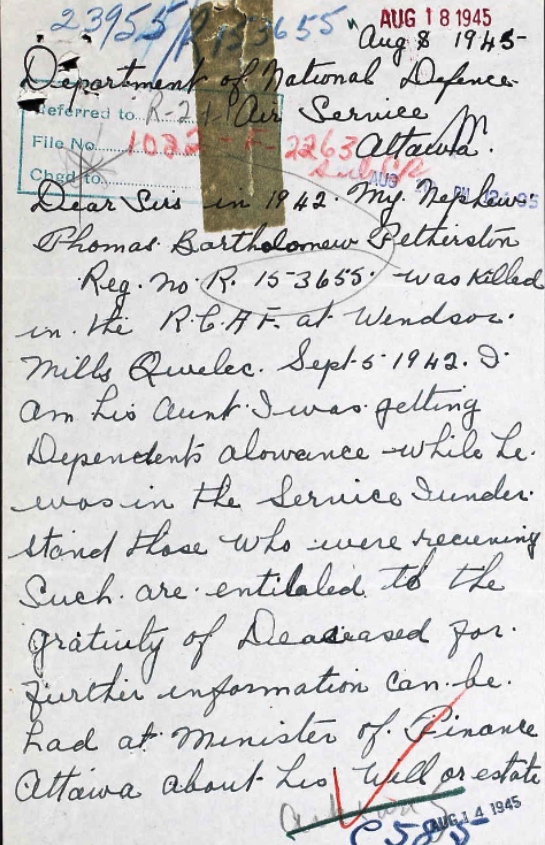 23955/R153655 " AUG 18 1945
Aug 8 1945
Department of National Defence
Referred to R-21 Air Service
File No. 1082-F-2263 Attawa.
Chgd to AUG
Dear Sirs in 1942. My. Nephew.
Thomas. Bartholomew Fetherston
Reg. no. R. 153655. was killed
in. the R.C.A.F. at Windsor.
Mills Qwebec. Sept 5 1942. I
am his aunt. I was getting
Dependents alowance while he.
was in the Service I under.
stand those who were recieving
Such. are. entilaled to the
gratiuty of Deaceased for.
further information can be.
had at Minister of. Finance
Attawa about his Will or estate
AUG 14 1945
C585